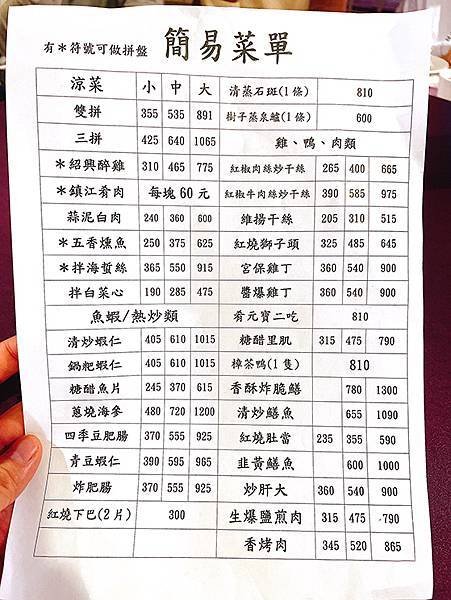 有＊符號可做拼盤 簡易菜單
涼菜 小 中 大
雙拼 355 535 891
三拼 425 640 1065
＊紹興醉雞 310 465 775
＊鎮江肴肉 每塊60元
蒜泥白肉 240 360 600
＊五香燻魚 250 375 625
＊拌海蜇絲 365 550 915
拌白菜心 190 285 475
魚蝦/熱炒類
清炒蝦仁 405 610 1015
鍋粑蝦仁 405 610 1015
糖醋魚片 245 370 615
蔥燒海參 480 720 1200
四季豆肥腸 370 555 925
青豆蝦仁 390 595 965
炸肥腸 370 555 925
紅燒下巴(2片) 300
清蒸石斑(1條) 810
樹子蒸泉鱸(1條) 600
雞、鴨、肉類
紅椒肉絲炒干絲 265 400 665
紅椒牛肉絲炒干絲 390 585 975
維揚干絲 205 310 515
紅燒獅子頭 325 485 645
宮保雞丁 360 540 900
醬爆雞丁 360 540 900
肴元寶二吃 810
糖醋里肌 315 475 790
樟茶鴨(1隻) 810
香酥炸脆鱔 780 1300
清炒鱔魚 655 1090
紅燒肚當 235 355 590
韭黃鱔魚 600 1000
炒肝大 360 540 900
生爆鹽煎肉 315 475 790
香烤肉 345 520 865